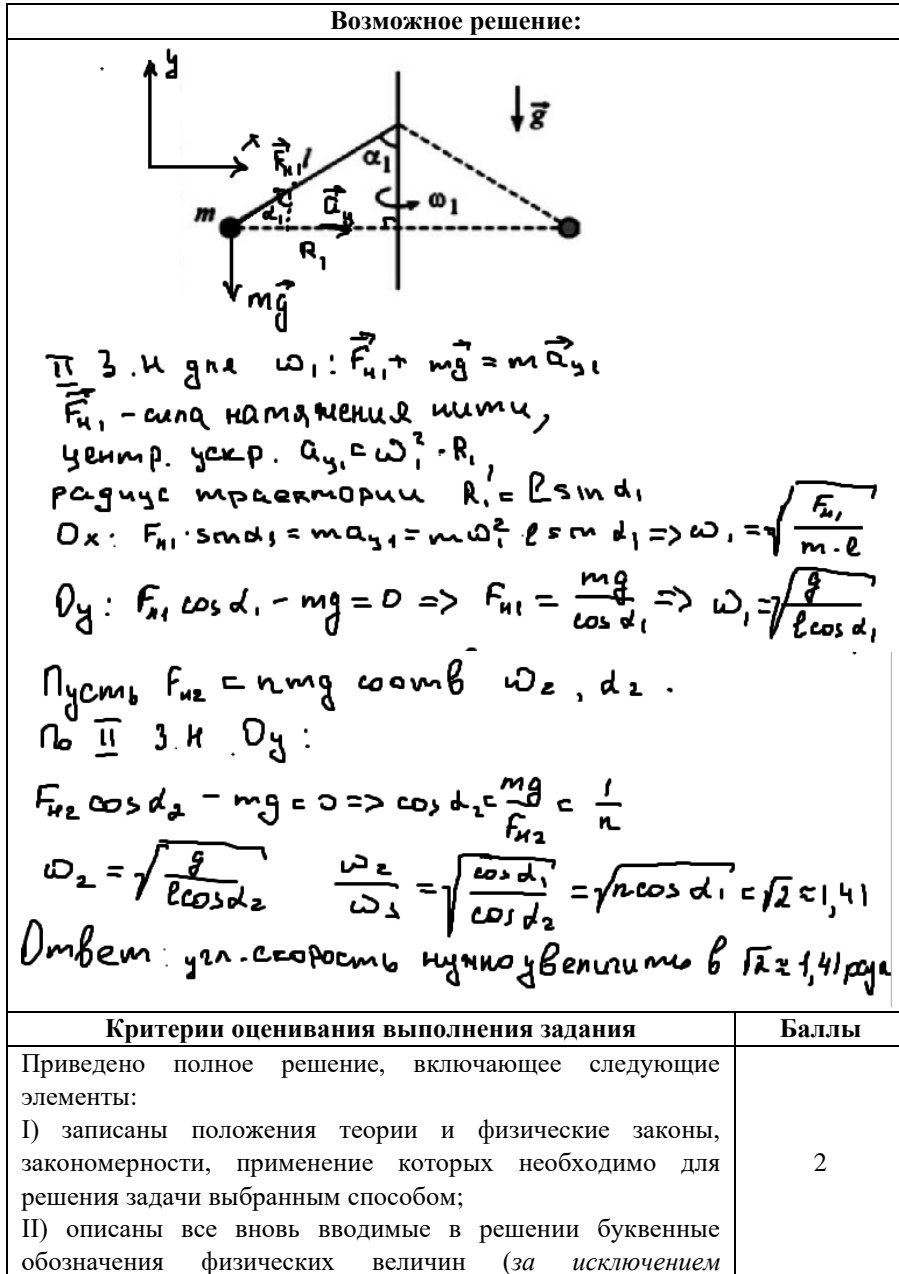 Возможное решение:
y
x
F⃗н1
l
α1
g⃗
m
α1
a⃗ц
ω1
R1
mg⃗
II З.Н для ω1: F⃗н1 + mg⃗ = ma⃗ц1
F⃗н1 - сила натяжения нити,
центр. ускр. aц1 = ω1² · R1,
радиус траектории R1 = l sin α1
Ox: Fн1 · sin α1 = maц1 = mω1² · l sin α1 => ω1 = √(Fн1 / (m · l))
Oy: Fн1 cos α1 - mg = 0 => Fн1 = mg / cos α1 => ω1 = √(g / (l cos α1))
Пусть Fн2 = nmg соотв ω2, α2.
По II З.Н Oy:
Fн2 cos α2 - mg = 0 => cos α2 = mg / Fн2 = 1 / n
ω2 = √(g / (l cos α2)) ω2 / ω1 = √(cos α1 / cos α2) = √(n cos α1) = √2 ≈ 1,41
Ответ: угл. скорость нужно увеличить в √2 ≈ 1,41 раза
Критерии оценивания выполнения задания Баллы
Приведено полное решение, включающее следующие
элементы:
I) записаны положения теории и физические законы,
закономерности, применение которых необходимо для 2
решения задачи выбранным способом;
II) описаны все вновь вводимые в решении буквенные
обозначения физических величин (за исключением